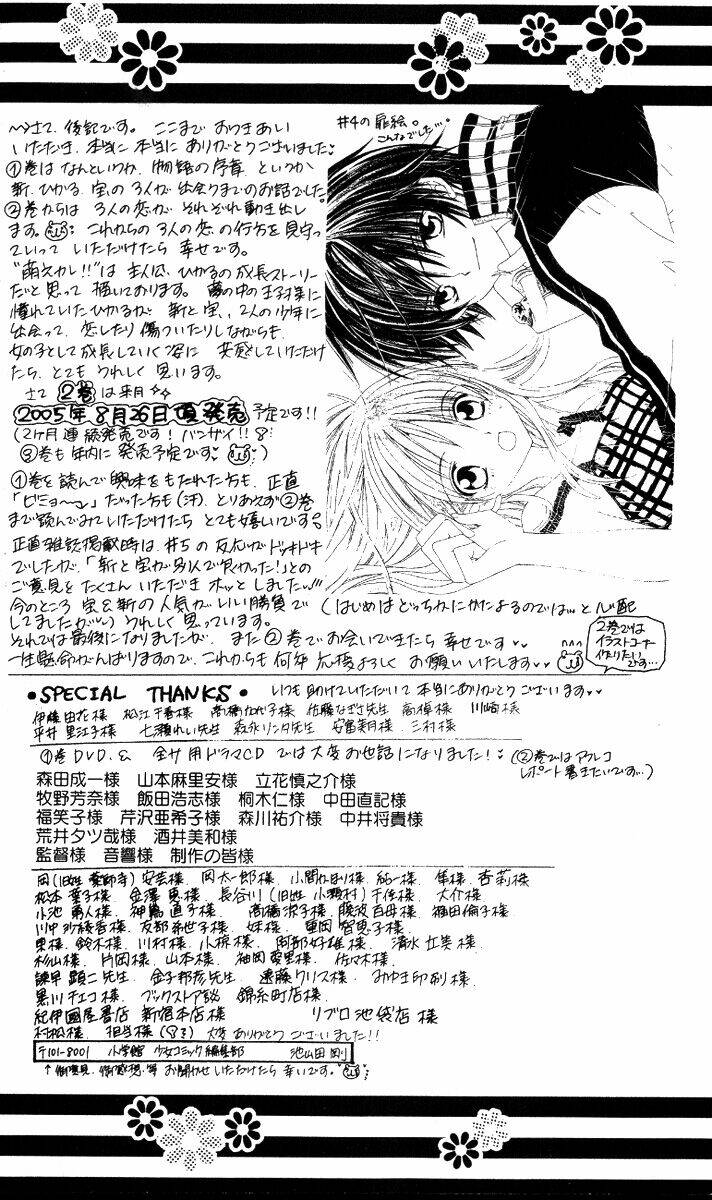 さて、後記です。ここまでおつきあい
いただき、本当に本当にありがとうございました
①巻はなんというか、物語の序章というか
新、ひかる、宝の3人が出会うまでのお話でした。
②巻からは3人の恋がそれぞれ動き出し
ます。これからの3人の恋の行方を見守っ
ていっていただけたら幸せです。
"萌えカレ!!"は主人公、ひかるの成長ストーリー
だと思って描いております。夢の中の王子様に
憧れていたひかるが新と宝、2人の少年に
出会って、恋したり傷ついたりしながらも
女の子として成長していく姿に共感していただけ
たら、とてもうれしく思います。
さて2巻は来月
2005年8月26日頃発売予定です!!
(2ヶ月連続発売です!バンザイ!!
③巻も年内に発売予定です)
①巻を読んで興味をもたれた方も、正直
「ビミョ〜」だった方も(汗)、とりあえず②巻
まで読んでみていただけたらとても嬉しいです。
正直雑誌掲載時は、#5の反応がドッキドキ
でしたが、「新と宝が別人で良かった!」との
ご意見をたくさんいただきホッとしました
今のところ宝&新の人気がいい勝負で(はじめはどっちかにかたよるのでは…と心配
してましたが)うれしく思っています。
それでは最後になりましたが、また②巻でお会いできたら幸せです
一生懸命がんばりますので、これからも何卒応援よろしくお願いいたします
#4の扉絵。
こんなでした…。
2巻では
イラストコーナー
作りたい
です…
•SPECIAL THANKS• いつも助けていただいて本当にありがとうございます
伊藤由花様 松江千春様 高橋加代子様 佐藤なぎさ先生 高棹様 川崎様
平井里江子様 七瀬れい先生 森永リンタ先生 安富美月様 三村様
①巻DVD、& 全サ用ドラマCDでは大変お世話になりました!(②巻ではアフレコ
レポート書きたいです…)
森田成一様 山本麻里安様 立花慎之介様
牧野芳奈様 飯田浩志様 桐木仁様 中田直記様
福笑子様 芹沢亜希子様 森川祐介様 中井将貴様
荒井タツ哉様 酒井美和様
監督様 音響様 制作の皆様
岡(旧姓 薬師寺)安芸様 岡太一郎様 小関かほり様 純一様 隼様 杏莉様
松本葉子様 金澤恵様 長谷川(旧姓 小瀬村)千佳様 大介様
小池勇人様 神島直子様 高橋涼子様 飯波百母様 福田倫子様
川中沙綾香様 友部希世子様 妹様 重岡智恵子様
東様 鈴木様 川村様 小椋様 阿部好雄様 清水壮美様
杉山様 片岡様 山本様 袖岡愛里様 佐々木様
諫早顕二先生 金子邦彦先生 遠藤クリス様 みゆき印刷様
黒川チエコ様 ブックストア談 錦糸町店様
紀伊國屋書店 新宿本店様 リブロ池袋店様
村松様 担当様 大変ありがとうございました!!
〒101-8001 小学館 少女コミック編集部 池山田剛
↑御意見、御感想等お聞かせいただけたら幸いです。